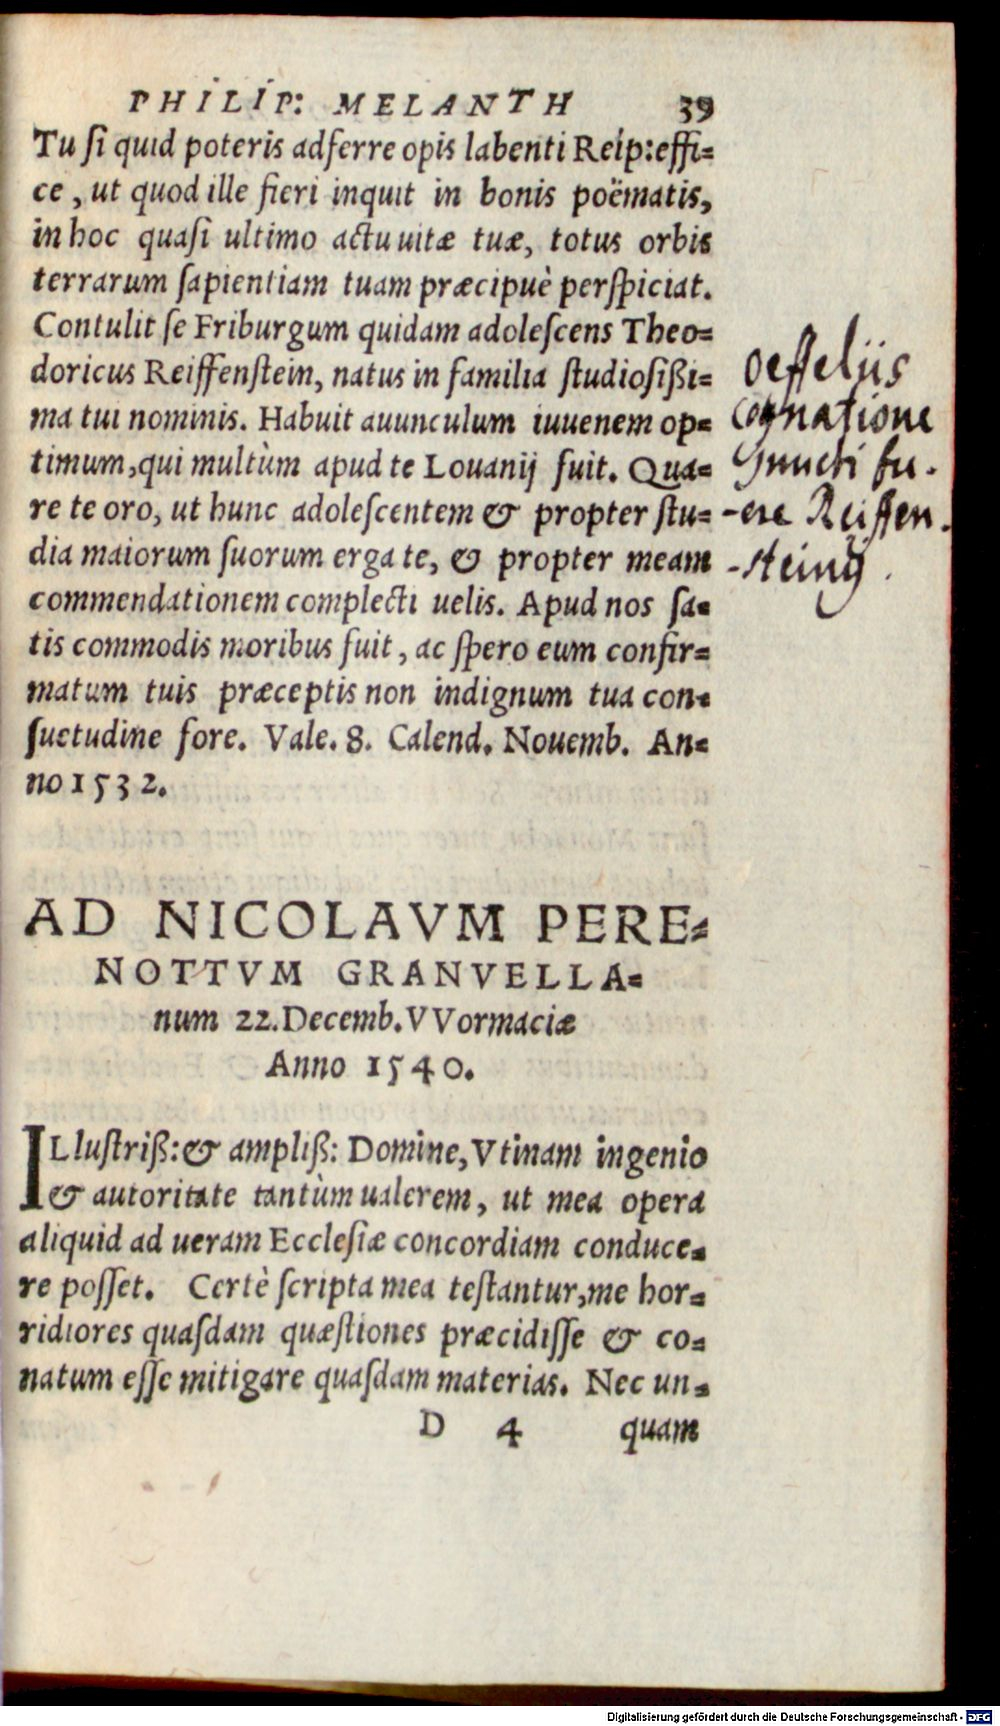 PHILIP: MELANTH 39
Tu ſi quid poteris adferre opis labenti Reip: effi=
ce, ut quod ille fieri inquit in bonis poëmatis,
in hoc quaſi ultimo actu uitæ tuæ, totus orbis
terrarum ſapientiam tuam præcipuè perſpiciat.
Contulit ſe Friburgum quidam adoleſcens Theo=
doricus Reiffenſtein, natus in familia ſtudioſißi=
ma tui nominis. Habuit auunculum iuuenem op=
timum, qui multùm apud te Louanij fuit. Qua=
re te oro, ut hunc adoleſcentem & propter ſtu=
dia maiorum ſuorum erga te, & propter meam
commendationem complecti uelis. Apud nos ſa=
tis commodis moribus fuit, ac ſpero eum confir=
matum tuis præceptis non indignum tua con=
ſuetudine fore. Vale. 8. Calend. Nouemb. An=
no 1532.
oeffelijs
cognatione
iuncti fu.
-ere Reiffen.
-steinij.
AD NICOLAVM PERE=
NOTTVM GRANVELLA=
num 22. Decemb. VVormaciæ
Anno 1540.
ILluſtriß: & ampliß: Domine, Vtinam ingenio
& autoritate tantùm ualerem, ut mea opera
aliquid ad ueram Eccleſiæ concordiam conduce=
re poſſet. Certè ſcripta mea teſtantur, me hor=
ridiores quaſdam quæſtiones præcidiſſe & co=
natum eſſe mitigare quaſdam materias. Nec un=
D 4 quam
Digitalisierung gefördert durch die Deutsche Forschungsgemeinschaft - DFG